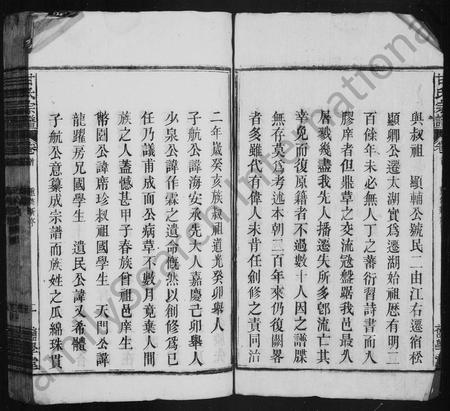 與叔祖　顯輔公號民二由江右遷宿松
顯卿公遷太湖實為遷湖始祖歷有明二
百餘年未必無人丁之蕃衍習詩書而入
膠庠者但鼎革之交流寇盤踞我邑最久
屠戮幾盡我先人播遷失所多郵流亡其
幸免而復原籍者不過數十人因之譜牒
無存莫為考述本朝二百年來仍復闕畧
者多雖代有偉人未肯任創修之責同治
二年歲癸亥族叔祖道光癸卯舉人
子航公諱海安承先大人嘉慶己卯舉人
少泉公諱作霖之遺命慨然以創修為己
任乃議甫成而公病草不數月竟棄人間
族之人蓋憾甚甲子春族叔祖邑庠生
幣園公諱席珍叔祖國學生　天門公諱
龍躍房兄國學生　遺民公諱又希體
子航公意纂成宗譜而族姓之瓜綿珠貫
甘氏宗譜
卷
甘氏宗譜
卷
一
FamilySearch International